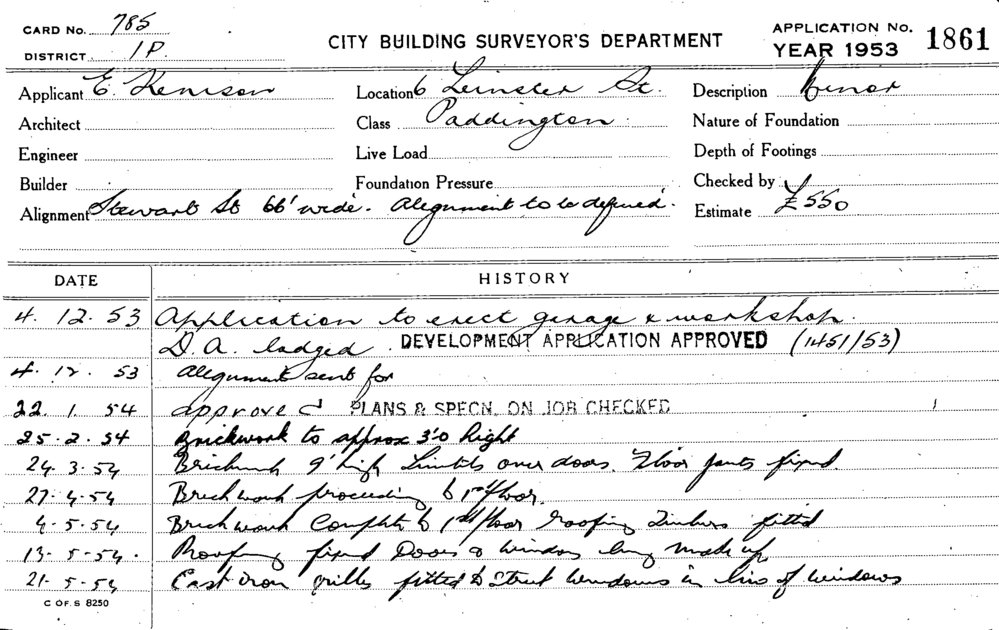 CARD No. 785
DISTRICT 1P.
CITY BUILDING SURVEYOR'S DEPARTMENT
APPLICATION No. 1861
YEAR 1953
Applicant E. Kenison Location 6 Leinster St. Description Minor
Architect Class Paddington Nature of Foundation
Engineer Live Load Depth of Footings
Builder Foundation Pressure Checked by
Alignment Stewart St 66' wide. Alignment to be defined. Estimate £550
DATE HISTORY
4. 12. 53 Application to erect garage & workshop.
D.A. lodged. DEVELOPMENT APPLICATION APPROVED (1451/53)
4. 12. 53 Alignment sent for
22. 1. 54 approved PLANS & SPECN. ON JOB CHECKED
25. 2. 54 Brickwork to approx 3'0 hight
24. 3. 54 Brickwork 9' high Lintels over doors. Floor joists fixed
27. 4. 54 Brickwork proceeding to 1st floor.
4. 5. 54 Brickwork Complete to 1st floor roofing Timbers fitted
13. 5. 54. Roofing fixed Doors & Windows being made up
21. 5. 54 Cast iron grilles fitted to Street Windows in lieu of windows
C OF S 8250